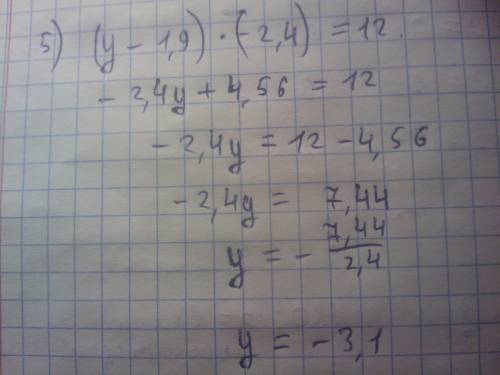 5) (y - 1,9) · (- 2,4) = 12.
- 2,4y + 4,56 = 12
- 2,4y = 12 - 4,56
- 2,4y = 7,44
y = - 7,44/2,4
y = - 3,1